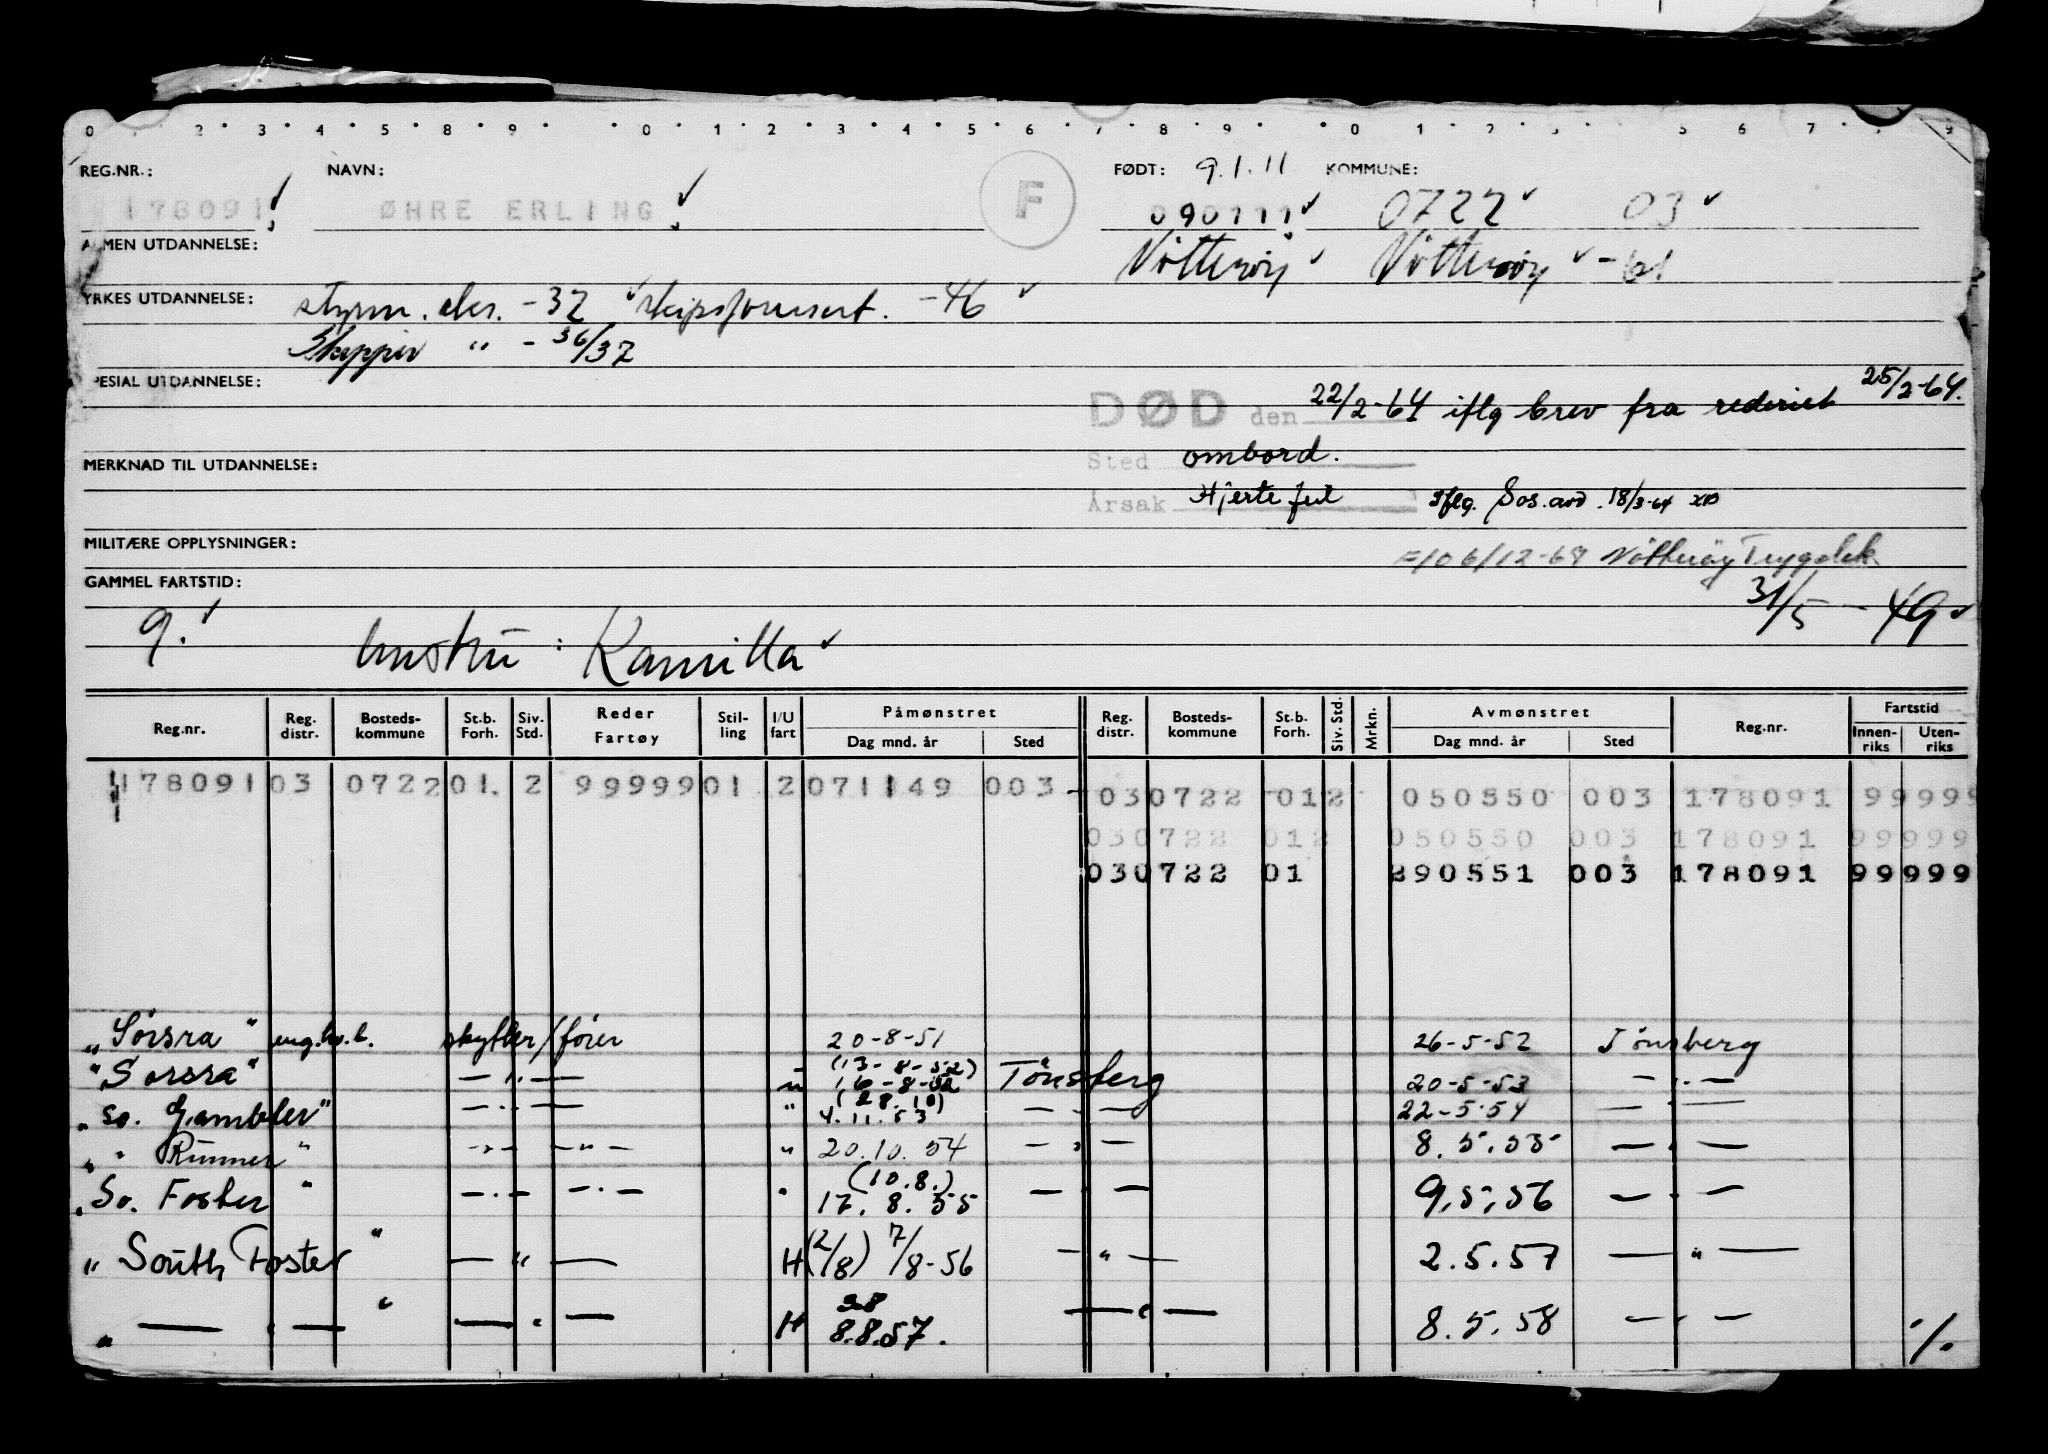 0 2 3 4 5 8 9 0 1 2 3 4 5 6 7 8 9 0 1 2 3 5 6 7 9
REG.NR.: NAVN: F FØDT: 9.1.11 KOMMUNE:
178091 ØHRE ERLING 090111 0722 03
MEN UTDANNELSE: Nötteröy Nötteröy -61
YRKES UTDANNELSE: styrm. eks. - 32 skipsførersert. - 46
Skipper " - 36/37
PESIAL UTDANNELSE:
DØD den 22/2-64 iflg brev fra rederiet 25/2-64.
MERKNAD TIL UTDANNELSE: Sted ombord.
Årsak Hjertefeil Iflg. Sos.avd. 18/3-64
MILITÆRE OPPLYSNINGER: 6/12-67 Nötteröy Trygdek
GAMMEL FARTSTID: 31/5 - 49
9. hustru : Kamilla
Reg.nr. Reg. distr. Bosteds- kommune St.b. Forh. Siv. Std. Reder Fartøy Stil- ling I/U fart Påmønstret Dag mnd. år Sted Reg. distr. Bosteds- kommune St.b. Forh. Siv. Std. Mrkn. Avmønstret Dag mnd. år Sted Reg.nr. Fartstid Innen- riks Uten- riks
178091 03 0722 01. 2 99999 01 2 071149 003 030722 012 050550 003 178091 99999
030722 012 050550 003 178091 99999
030722 01 290551 003 178091 99999
"Sörsra" skytter/fører 20-8-51 26-5-52 Tönsberg
"Sorsra" — " — (13-8-52) 16-8-52 Tönsberg 20-5-53 — " —
" so. Gambler" — " — " (28.10) 4.11.53 — " — 22-5-54 — " —
" " Runner " — " — — " — " 20.10.54 — " — 8.5.55 — " —
"So. Foster " — " — — " — " (10.8.) 17.8.55 — " — 9.5.56 — " —
" South Foster " — " — H (2/8) 7/8-56 — " — 2.5.57 — " —
" — " — " — " — H 8.8.57. — " — 8.5.58 — " — ./.